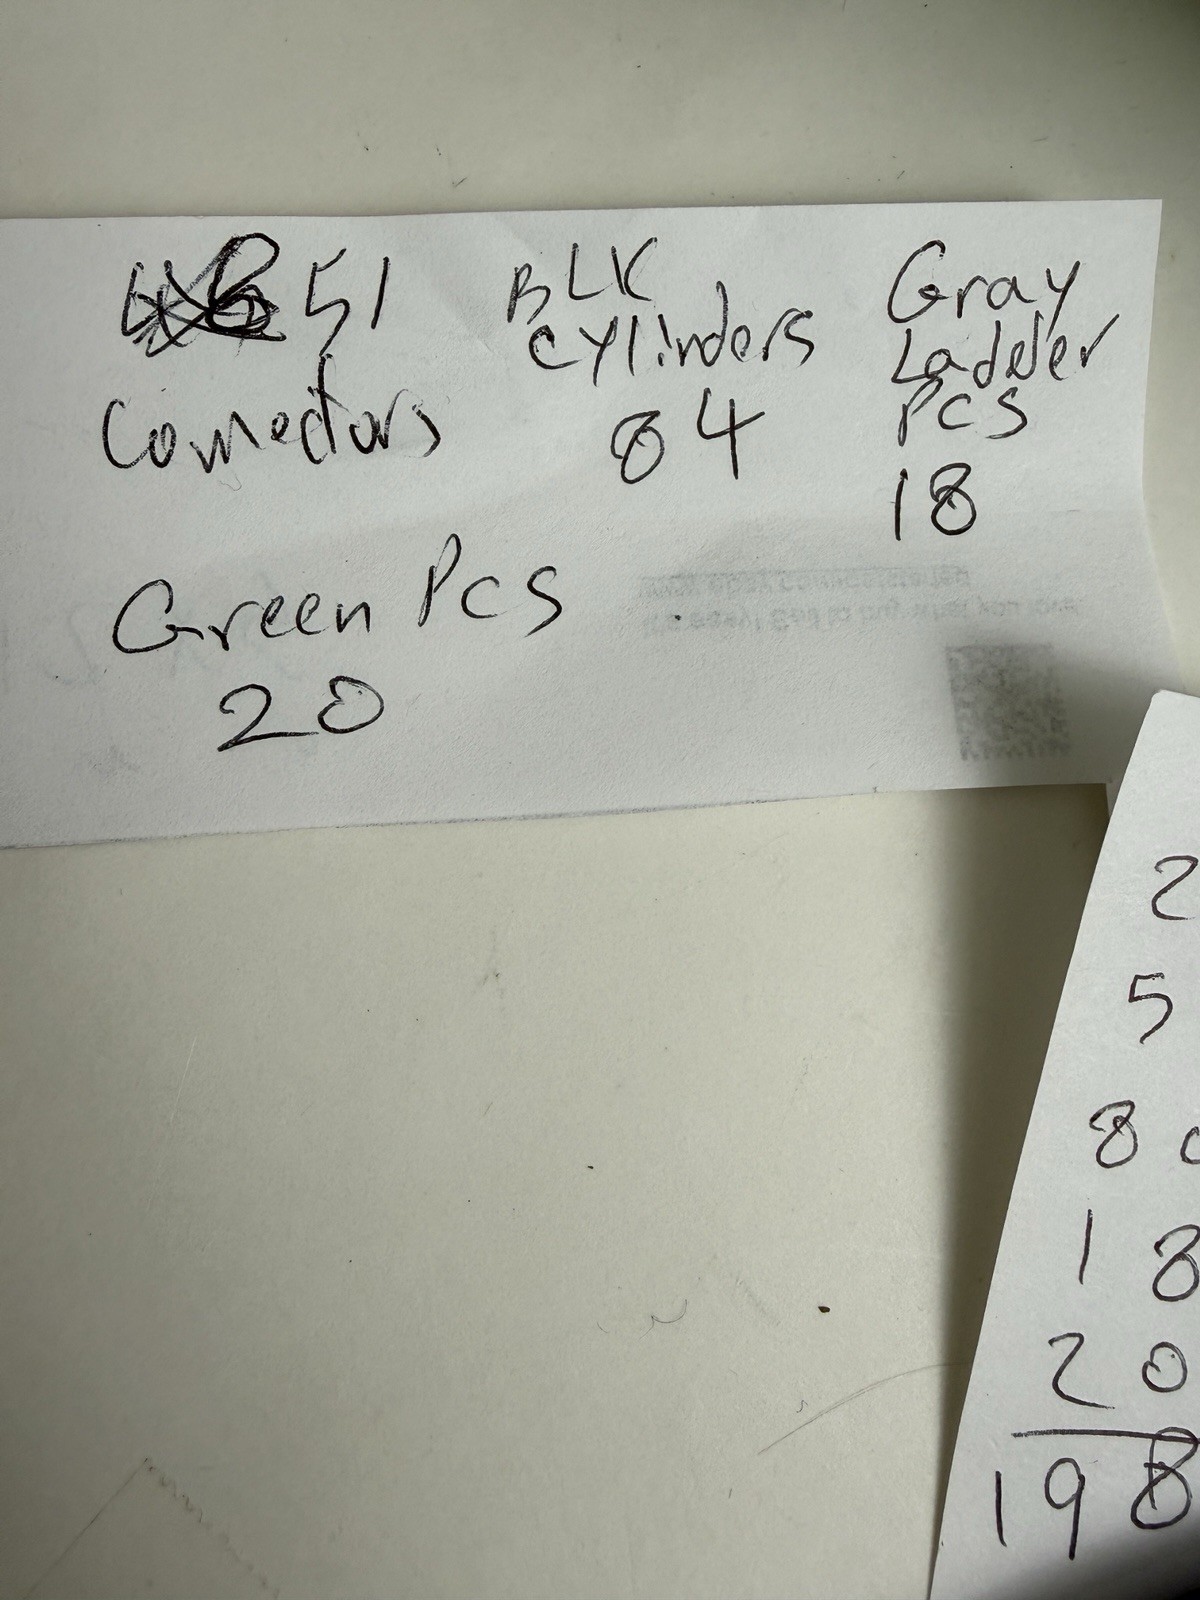 51
Connectors
BLK
Cylinders
84
Gray
Ladder
Pcs
18
Green Pcs
20
2
5
8
18
20
198